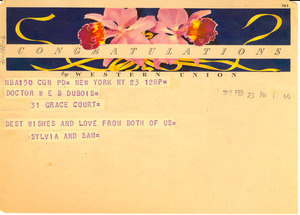 CONGRATULATIONS
By WESTERN UNION
NBA150 CGN PD= NEW YORK NY 23 128P=
DOCTOR W E B DUBOIS=
31 GRACE COURT=
BEST WISHES AND LOVE FROM BOTH OF US=
SYLVIA AND SAM=
FEB 23 PM 1 46